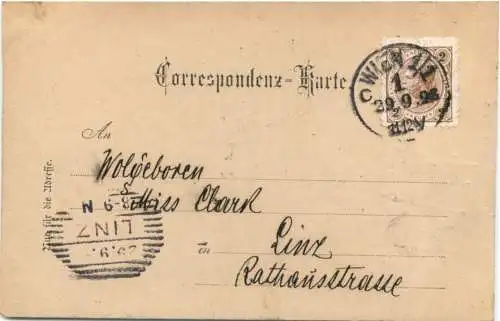 Correspondenz-Karte.
2
WIEN 1/1
1
C
29.9.96
An
Wolgeboren
Miss Clark
in
Linz
Rathausstrasse
Nur für die Adresse.
8-9 N
LINZ